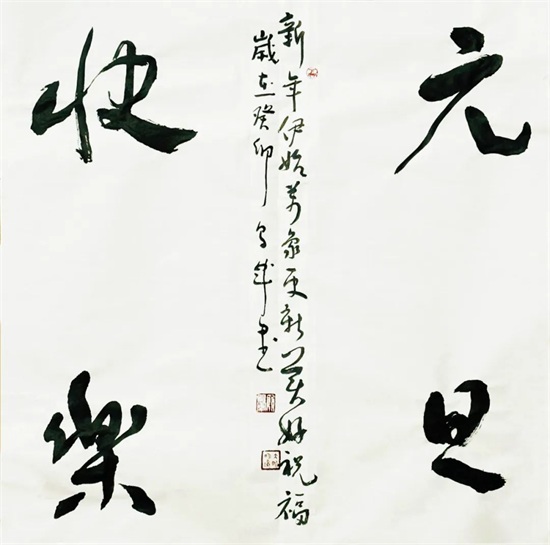 元旦
新年伊始萬象更新美好祝福
歲在癸卯 書
快樂